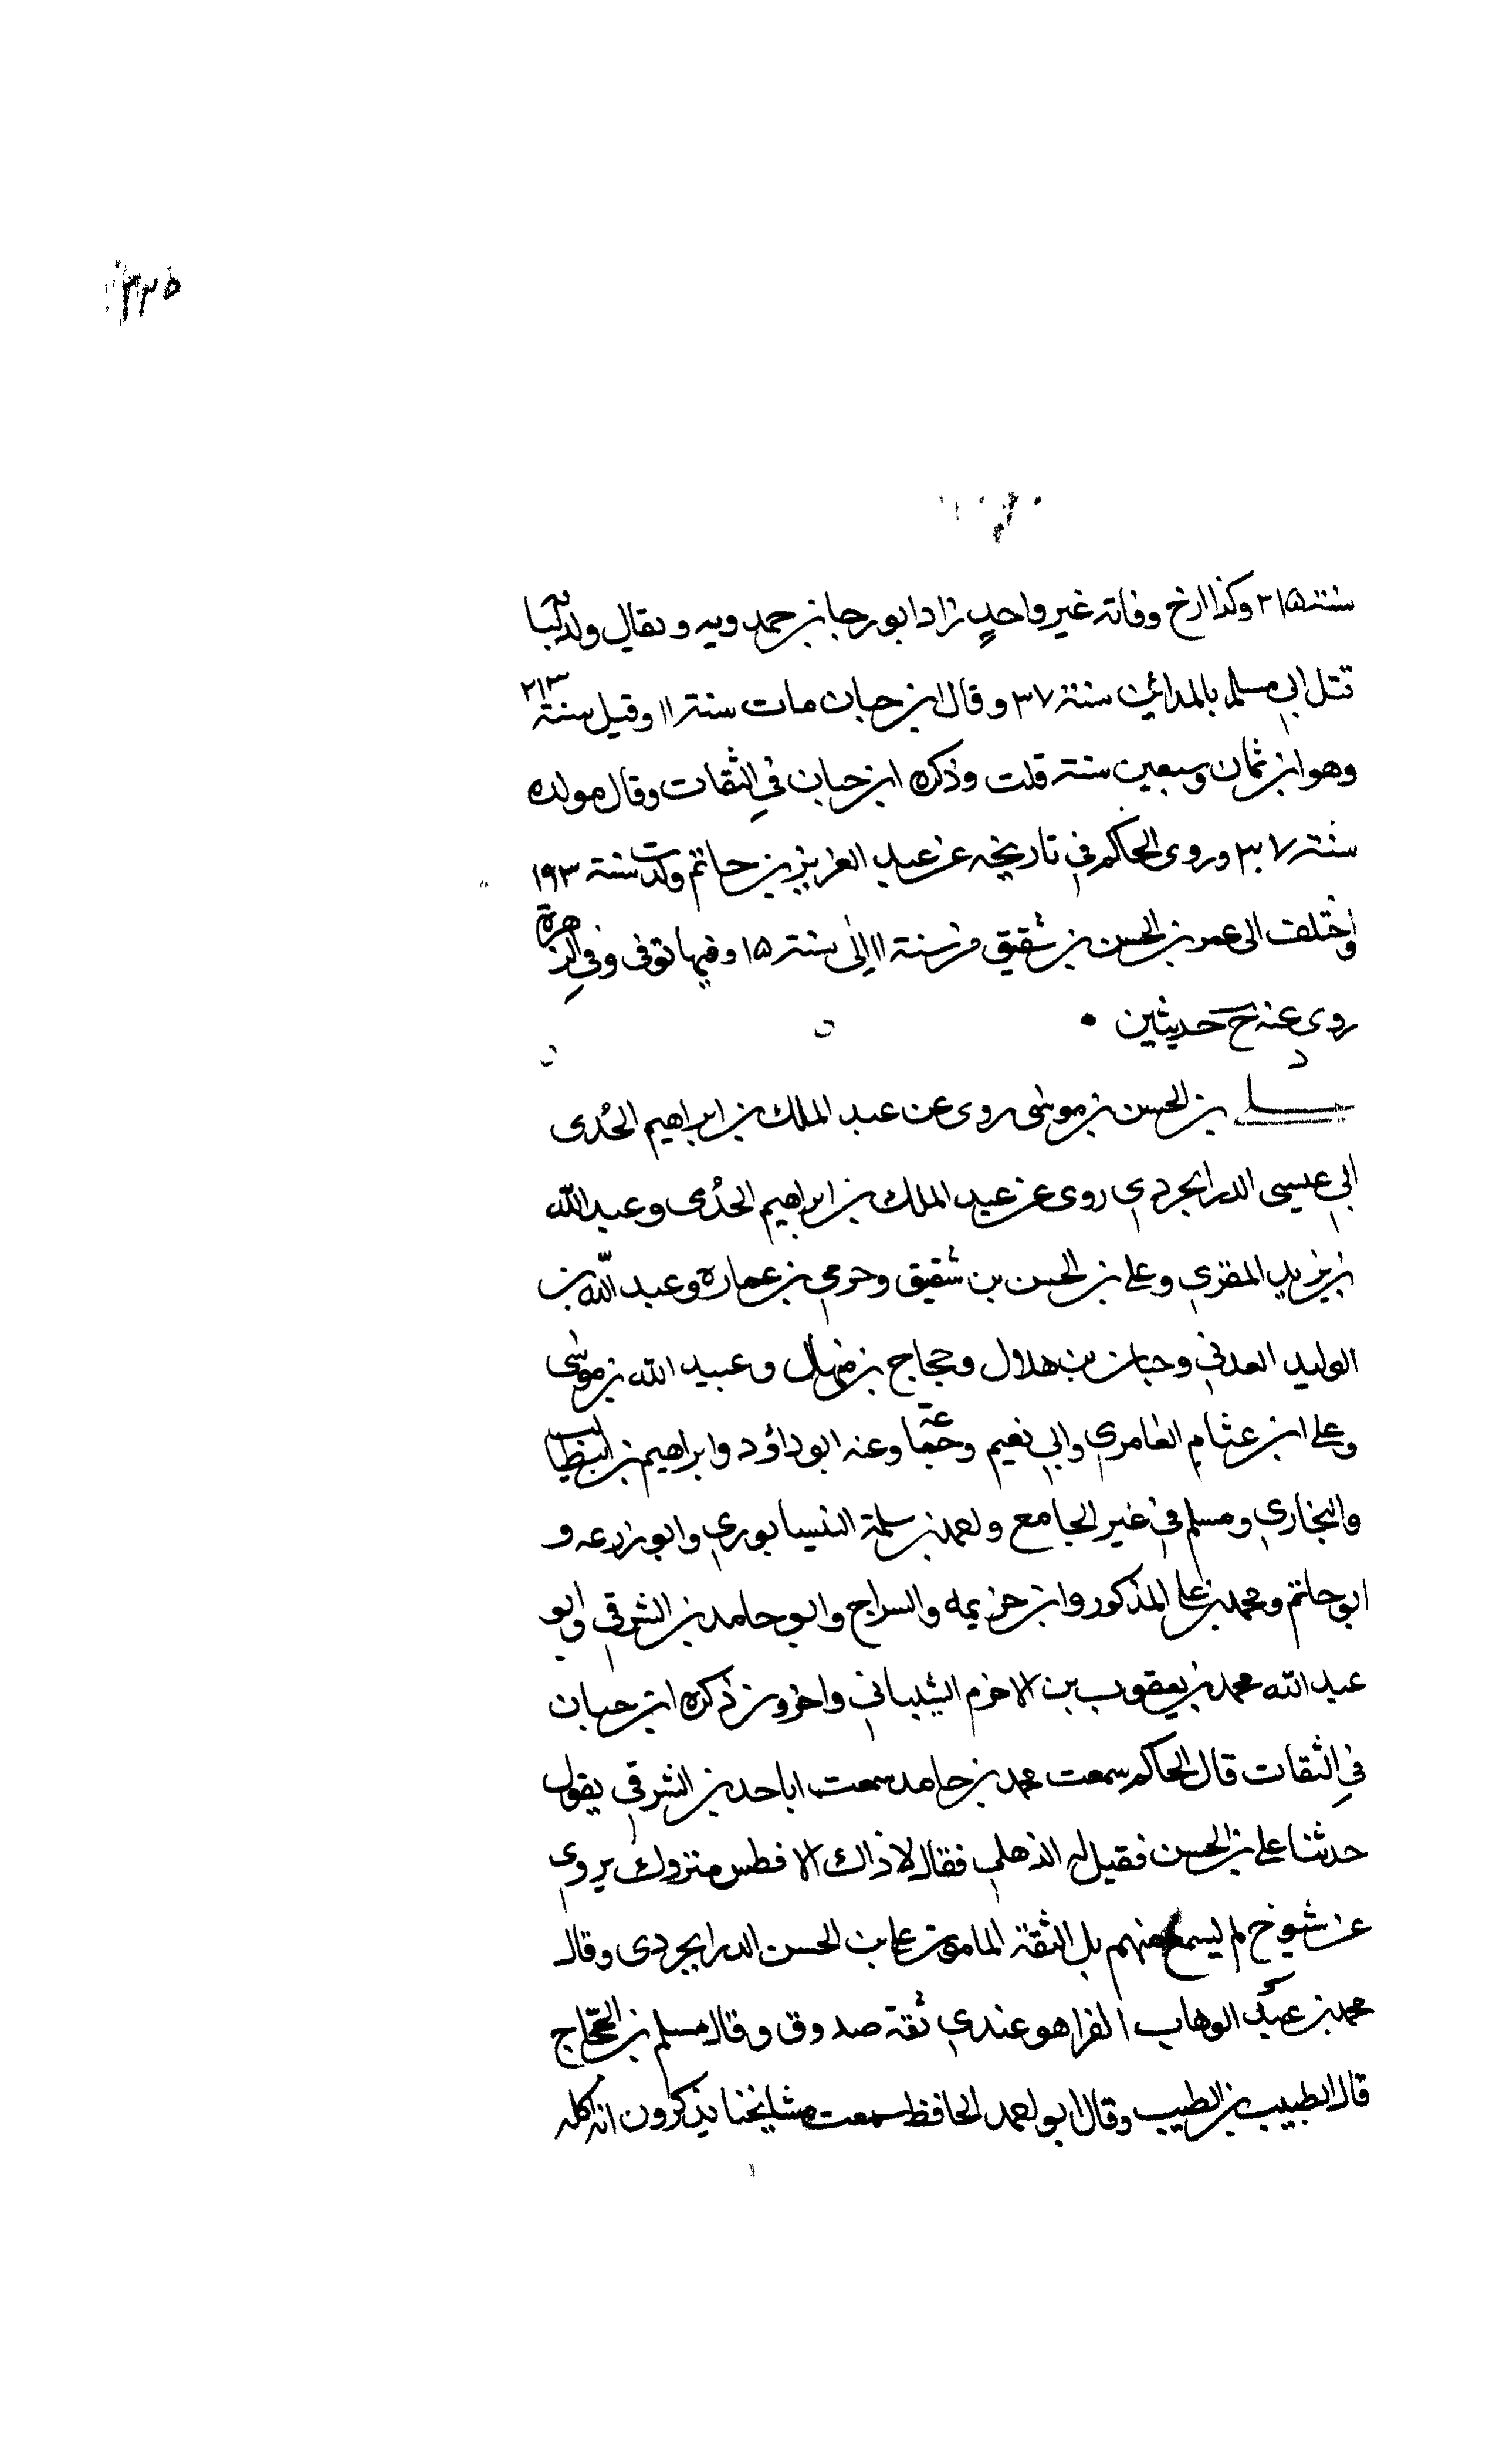 ٢٣٥
سنة ٢١٥ وكذا ارخ وفاته غير واحد زاد ابو رجا بن حمدويه ويقال ولد ليلة
قتل ابي مسلم بالمدائن سنة ٣٧ وقال ابن حبان مات سنة ١١ وقيل سنة ٢١٣
وهو ابن ثمان وسبعين سنة قلت وذكره ابن حبان في الثقات وقال مولده
سنة ٣٧ وروى الحاكم في تاريخه عن عبد العزيز بن حاتم ولدت سنة ١٩٣
واختلف الى عمر بن الحسن بن شقيق من سنة ١١ الى سنة ١٥ وفيها توفى وفي الزهرة
روى عنه خ حديثين
د
علي بن الحسن بن موسى روى عن عبد الملك بن ابراهيم الجُدى
ابي عيسى الدرابجردي روى عن عبد الملك بن ابراهيم الجُدى وعبد الله
بن يزيد المقري وعلي بن الحسن بن شقيق وحرمي بن عمارة وعبد الله بن
الوليد العدني وحبان بن هلال وحجاج بن منهال وعبيد الله بن موسى
وعلي ابن عثام العامري وابي نعيم وجماعة وعنه ابو داؤد وابراهيم بن
والبخاري ومسلم في غير الجامع واحمد بن سلمة النيسابوري وابو زرعه و
ابو حاتم ومحمد بن علي المذكور وابن خزيمه والسراج وابو حامد بن الشرقي وابو
عبد الله محمد بن يعقوب بن الاخرم الشيباني واخرون ذكره ابن حبان
في الثقات قال الحاكم سمعت محمد بن حامد سمعت ابا حمد بن الشرقي يقول
حدثنا علي بن الحسن فقيل له الذهلي فقال لا ذاك الافطس متروك يروي
عن شيوخ لم يسمع منهم بل الثقة المامون علي بن الحسن الدرابجردى وقال
محمد بن عبد الوهاب الفرا هو عندي ثقة صدوق وقال مسلم بن الحجاج
قال الطيب بن الطيب وقال ابو احمد الحافظ سمعت مشايخنا يذكرون انه اكله